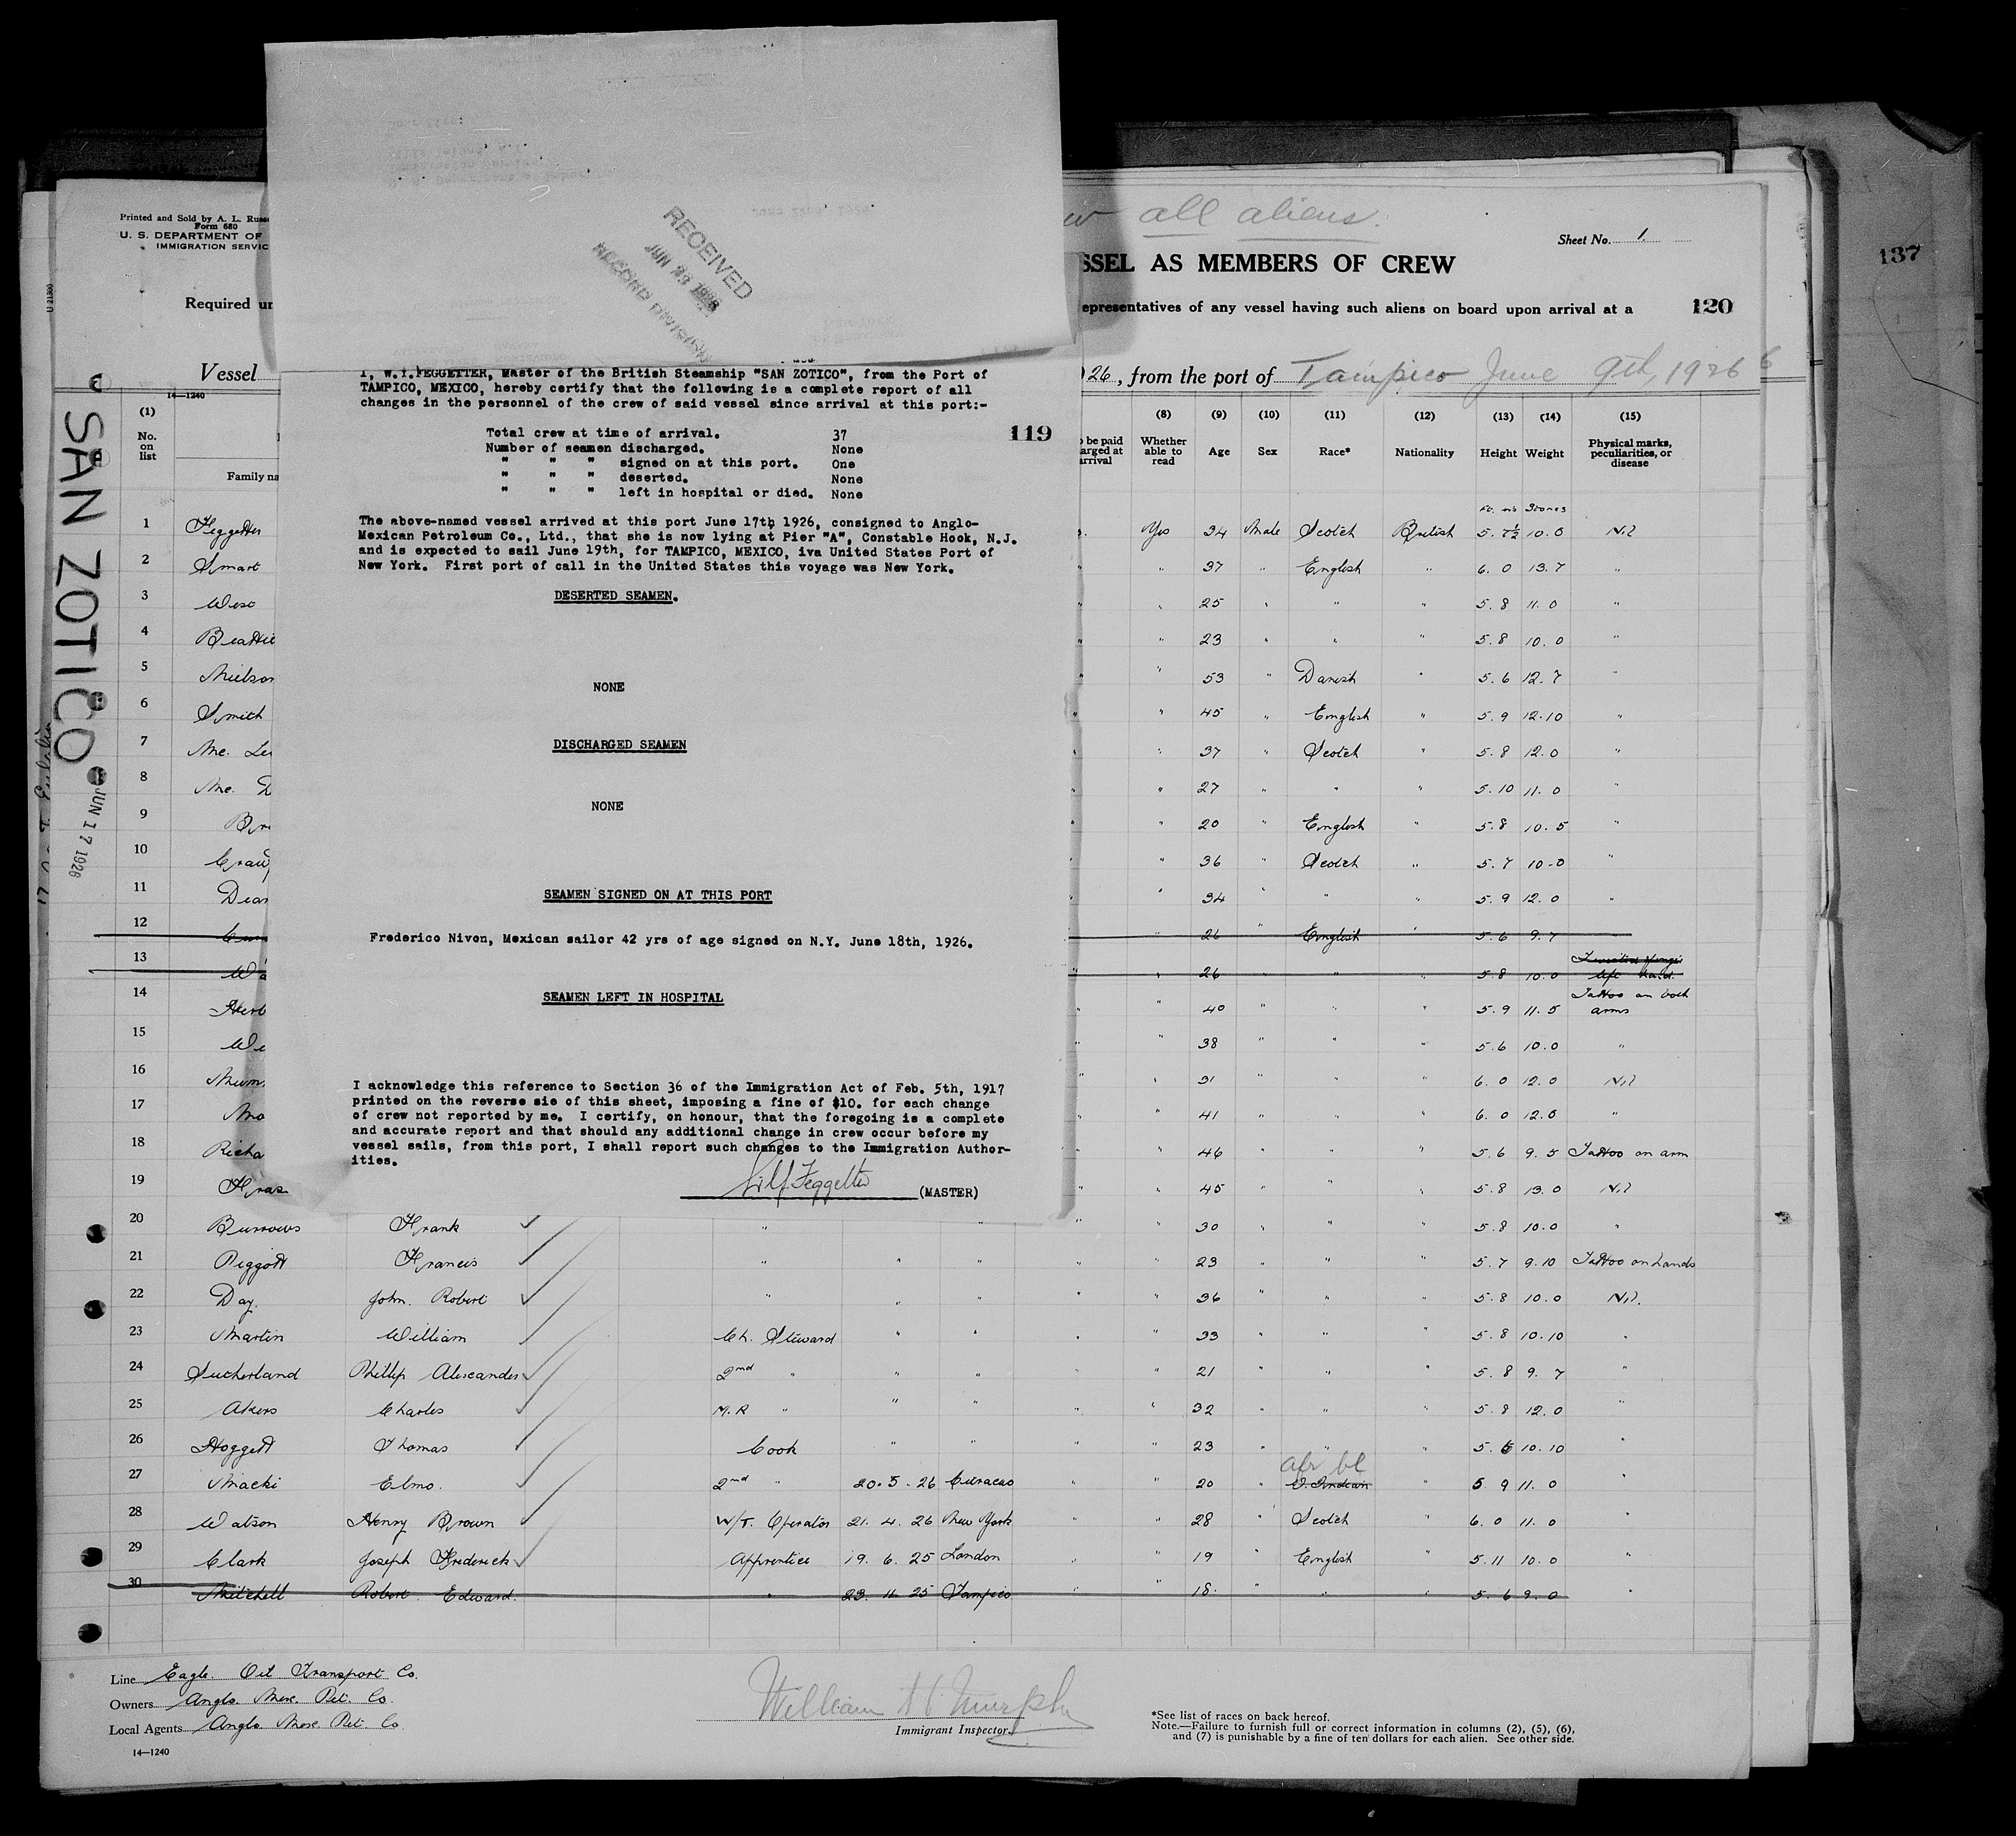 Printed and Sold by A. L.
Form 680
U. S. DEPARTMENT OF
IMMIGRATION SERVIC
Required un
Vessel
14—1240
U 21300
SAN ZOTICO
JUN 17 1926
RECEIVED
JUN 23 1926
RECORD DIVISION
all aliens.
Sheet No. 1.
SSEL AS MEMBERS OF CREW
epresentatives of any vessel having such aliens on board upon arrival at a
120
137
26, from the port of Tampico June 9th, 1926
I, W.I. FEGGETTER, Master of the British Steamship "SAN ZOTICO", from the Port of
TAMPICO, MEXICO, hereby certify that the following is a complete report of all
changes in the personnel of the crew of said vessel since arrival at this port:-
119
Total crew at time of arrival. 37
Number of seamen discharged. None
" " " signed on at this port. One
" " " deserted. None
" " " left in hospital or died. None
The above-named vessel arrived at this port June 17th 1926, consigned to Anglo-
Mexican Petroleum Co., Ltd., that she is now lying at Pier "A", Constable Hook, N.J.
and is expected to sail June 19th, for TAMPICO, MEXICO, iva United States Port of
New York. First port of call in the United States this voyage was New York.
DESERTED SEAMEN.
NONE
DISCHARGED SEAMEN
NONE
SEAMEN SIGNED ON AT THIS PORT
Frederico Nivon, Mexican sailor 42 yrs of age signed on N.Y. June 18th, 1926.
SEAMEN LEFT IN HOSPITAL
I acknowledge this reference to Section 36 of the Immigration Act of Feb. 5th, 1917
printed on the reverse sie of this sheet, imposing a fine of $10. for each change
of crew not reported by me. I certify, on honour, that the foregoing is a complete
and accurate report and that should any additional change in crew occur before my
vessel sails, from this port, I shall report such changes to the Immigration Author-
ities.
Feggetter (MASTER)
(1) (8) (9) (10) (11) (12) (13) (14) (15)
No. on list
Family na
o be paid arged at arrival
Whether able to read
Age
Sex
Race*
Nationality
Height
Weight
Physical marks, peculiarities, or disease
Stones
1 Feggetter Yes 34 Male Scotch British 5. 7½ 10.0 Nil
2 Smart " 37 " English " 6. 0 13. 7 "
3 West " 25 " " " 5. 8 11. 0 "
4 Beattie " 23 " " " 5. 8 10. 0 "
5 Nielson " 53 " Danish " 5. 6 12. 7 "
6 Smith " 45 " English " 5. 9 12.10 "
7 Mc. Le " 37 " Scotch " 5. 8 12. 0 "
8 Mc. D " 27 " " " 5. 10 11. 0 "
9 " 20 " English " 5. 8 10. 5 "
10 Craw " 36 " Scotch " 5. 7 10-0 "
11 Dea " 34 " " " 5. 9 12. 0 "
12 " 26 " English " 5. 6 9. 7
13 Wa " 26 " " " 5 8 10.0 left hand.
14 Herb " 40 " " " 5. 9 11. 5 Tattoo on both arms
15 We " 38 " " " 5. 6 10. 0 "
16 " 31 " " " 6. 0 12. 0 Nil
17 Mo " 41 " " " 6. 0 12. 0 "
18 Richa " 46 " " " 5. 6 9. 5 Tattoo on arm
19 Fras " 45 " " " 5. 8 13. 0 Nil
20 Burrows Frank " " " 30 " " " 5. 8 10. 0 "
21 Piggott Francis " " " " " 23 " " " 5. 7 9. 10 Tattoo on hands
22 Day. John. Robert " " " " " 36 " " " 5. 8 10. 0 Nil.
23 Martin William Ch. Steward " " " " 33 " " " 5. 8 10. 10 "
24 Sutherland Phillip Alexander 2nd " " " " " 21 " " " 5. 8 9. 7 "
25 Akers Charles M.R " " " " " 32 " " " 5. 8 12. 0 "
26 Hoggett Thomas Cook " " " " 23 " " " 5. 6 10. 10 "
27 Macki Elmo. 2nd " 20. 5. 26 Curacao " " 20 " W. Indian afr bl " 5 9 11. 0 "
28 Watson Henry Brown W/T. Operator 21. 4. 26 New York " " 28 " Scotch " 6. 0 11. 0 "
29 Clark Joseph Frederick Apprentice 19. 6. 25 London " " 19 " English " 5. 11 10. 0 "
30 Mitchell Robert Edward. " 23. 11 25 Tampico " " 18. " " " 5. 6 9. 0 "
Line Eagle Oil Transport Co.
Owners Anglo. Mex. Pet. Co.
Local Agents Anglo Mex. Pet. Co.
14—1240
William H Murphy
Immigrant Inspector.
*See list of races on back hereof.
Note.—Failure to furnish full or correct information in columns (2), (5), (6),
and (7) is punishable by a fine of ten dollars for each alien. See other side.